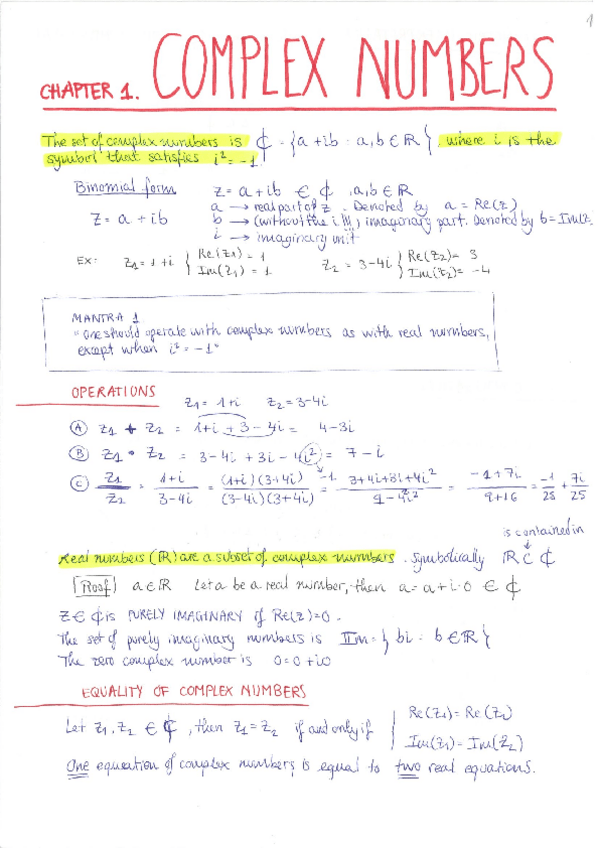 1
CHAPTER 1. COMPLEX NUMBERS
The set of complex numbers is ₵ = {a + ib : a, b ∈ ℝ}, where i is the
symbol that satisfies i² = -1
Binomial form z = a + ib ∈ ₵ , a, b ∈ ℝ
a → real part of z. Denoted by a = Re(z)
z = a + ib b → (without the i !!!) imaginary part. Denoted by b = Im(z)
i → imaginary unit
Ex: z1 = 1 + i } Re(z1) = 1 z2 = 3 - 4i } Re(z2) = 3
Im(z1) = 1 Im(z2) = -4
MANTRA 1
"One should operate with complex numbers as with real numbers,
except when i² = -1"
OPERATIONS
z1 = 1+i z2 = 3-4i
(A) z1 + z2 = 1+i + 3 - 4i = 4 - 3i
(B) z1 · z2 = 3 - 4i + 3i - 4i² = 7 - i
(C) z1/z2 = 1+i / 3-4i = (1+i)(3+4i) / (3-4i)(3+4i) = 3+4i+3i+4i² / 9-4²i² = -1+7i / 9+16 = -1/25 + 7i/25
-1
is contained in
Real numbers (ℝ) are a subset of complex numbers. Symbolically ℝ ⊂ ₵
Proof a ∈ ℝ Let a be a real number, then a = a + i·0 ∈ ₵
z ∈ ₵ is PURELY IMAGINARY if Re(z)=0.
The set of purely imaginary numbers is IIm = { bi : b ∈ ℝ }
The zero complex number is 0 = 0 + i0
EQUALITY OF COMPLEX NUMBERS
Let z1, z2 ∈ ₵, then z1 = z2 if and only if { Re(z1) = Re(z2)
Im(z1) = Im(z2)
One equation of complex numbers is equal to two real equations.